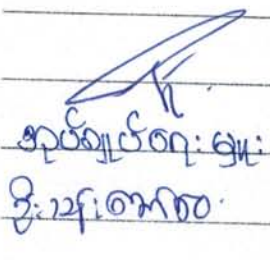 အုပ်ချုပ်ရေးမှူး
ဦးသန်းအောင်